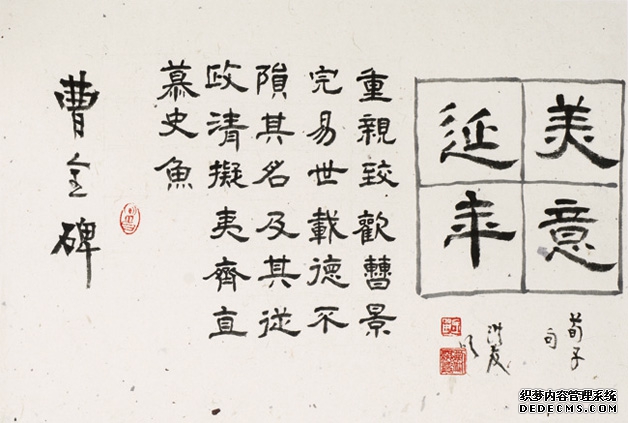 美意
延年
荀子
句
重親致歡曹景
完易世載德不
隕其名及其從
政清擬夷齊直
慕史魚
曹全碑
织梦内容管理系统
DEDECMS.COM